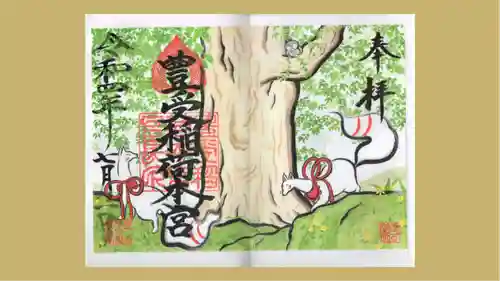 奉拝
豊受稲荷本宮
令和四年
七月